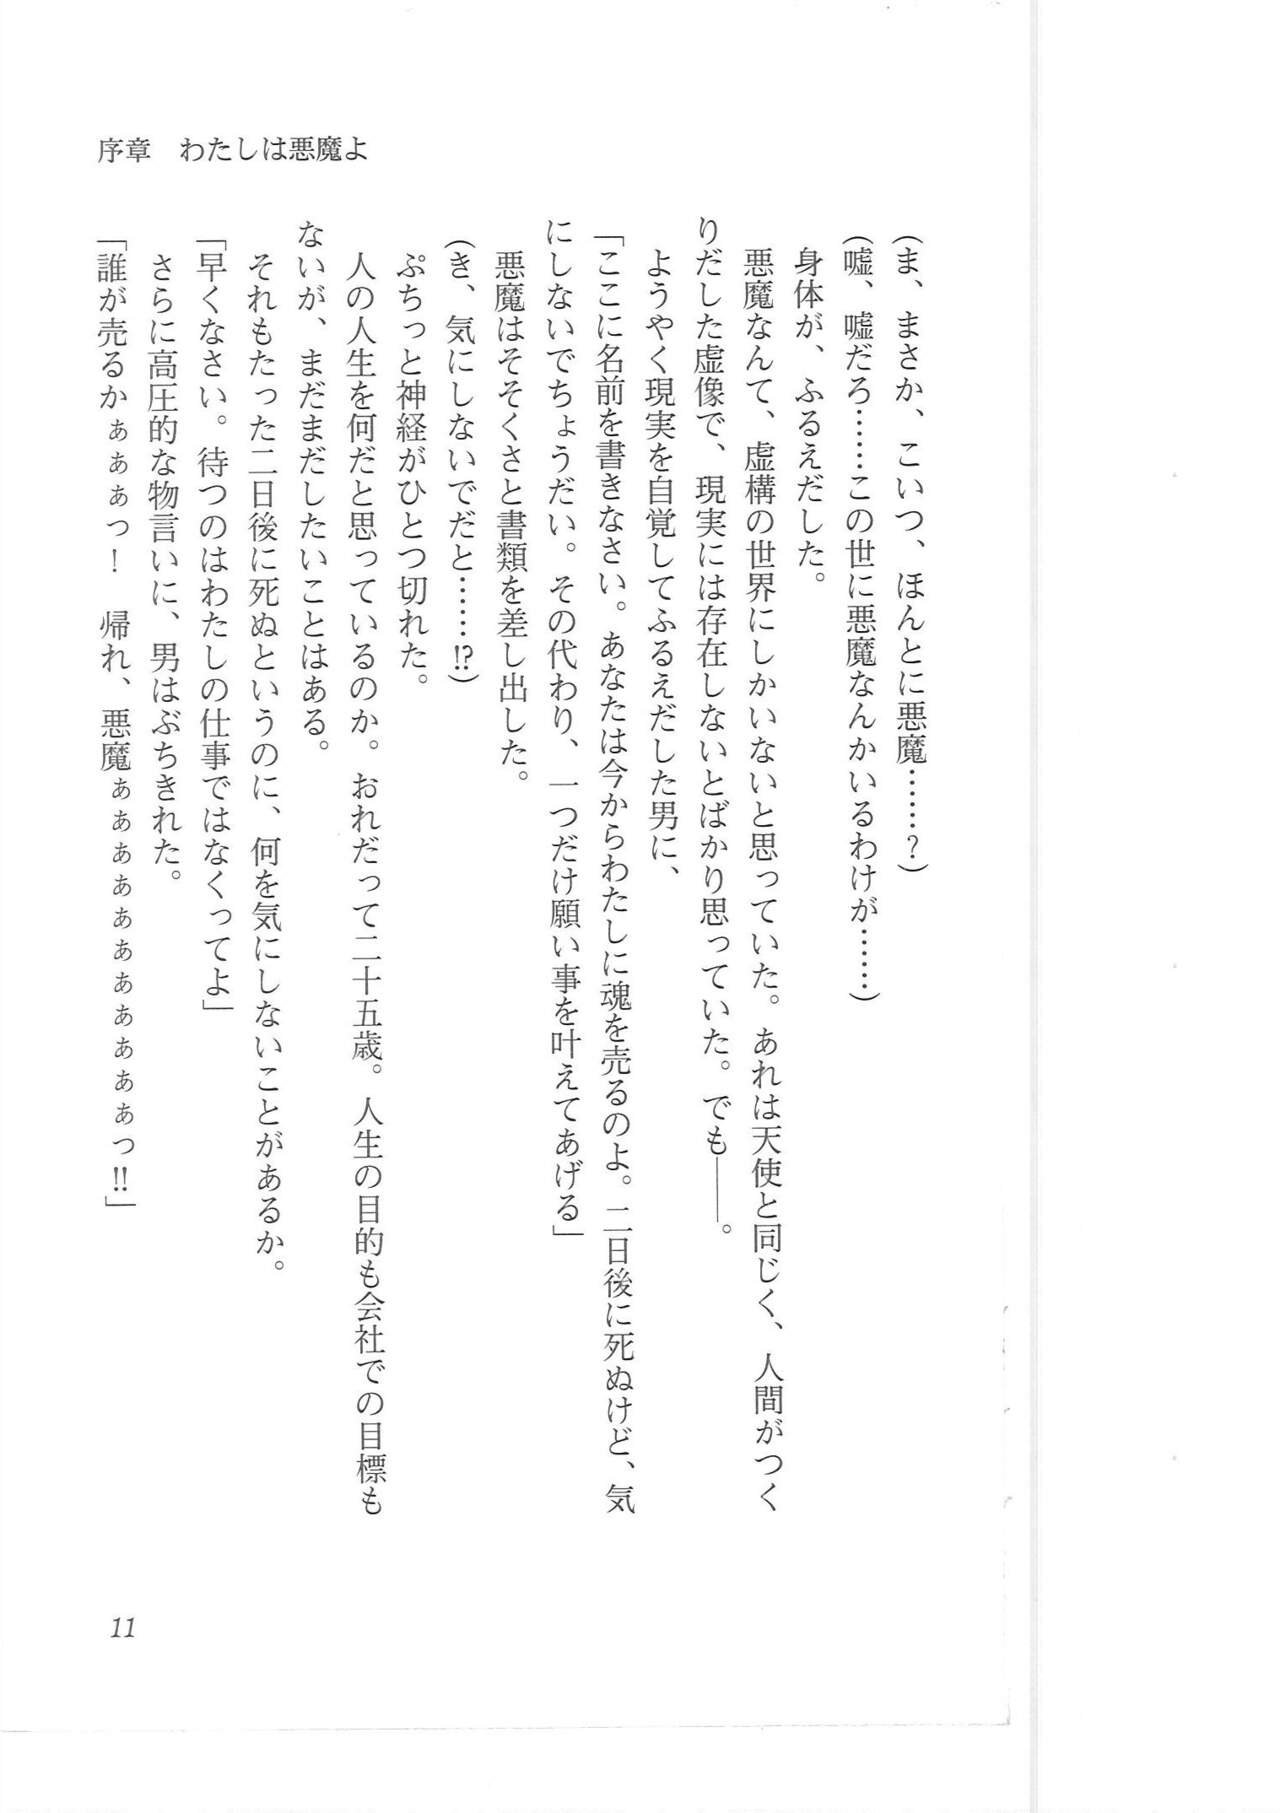 序章　わたしは悪魔よ
(ま、まさか、こいつ、ほんとに悪魔……？)
(嘘、嘘だろ……この世に悪魔なんかいるわけが……)
　身体が、ふるえだした。
　悪魔なんて、虚構の世界にしかいないと思っていた。あれは天使と同じく、人間がつく
りだした虚像で、現実には存在しないとばかり思っていた。でも――。
　ようやく現実を自覚してふるえだした男に、
「ここに名前を書きなさい。あなたは今からわたしに魂を売るのよ。二日後に死ぬけど、気
にしないでちょうだい。その代わり、一つだけ願い事を叶えてあげる」
　悪魔はそそくさと書類を差し出した。
(き、気にしないでだと……!?)
　ぷちっと神経がひとつ切れた。
　人の人生を何だと思っているのか。おれだって二十五歳。人生の目的も会社での目標も
ないが、まだまだしたいことはある。
　それもたった二日後に死ぬというのに、何を気にしないことがあるか。
「早くなさい。待つのはわたしの仕事ではなくってよ」
　さらに高圧的な物言いに、男はぶちきれた。
「誰が売るかぁぁぁっ！　帰れ、悪魔ぁぁぁぁぁぁぁぁぁぁぁっ!!」
11